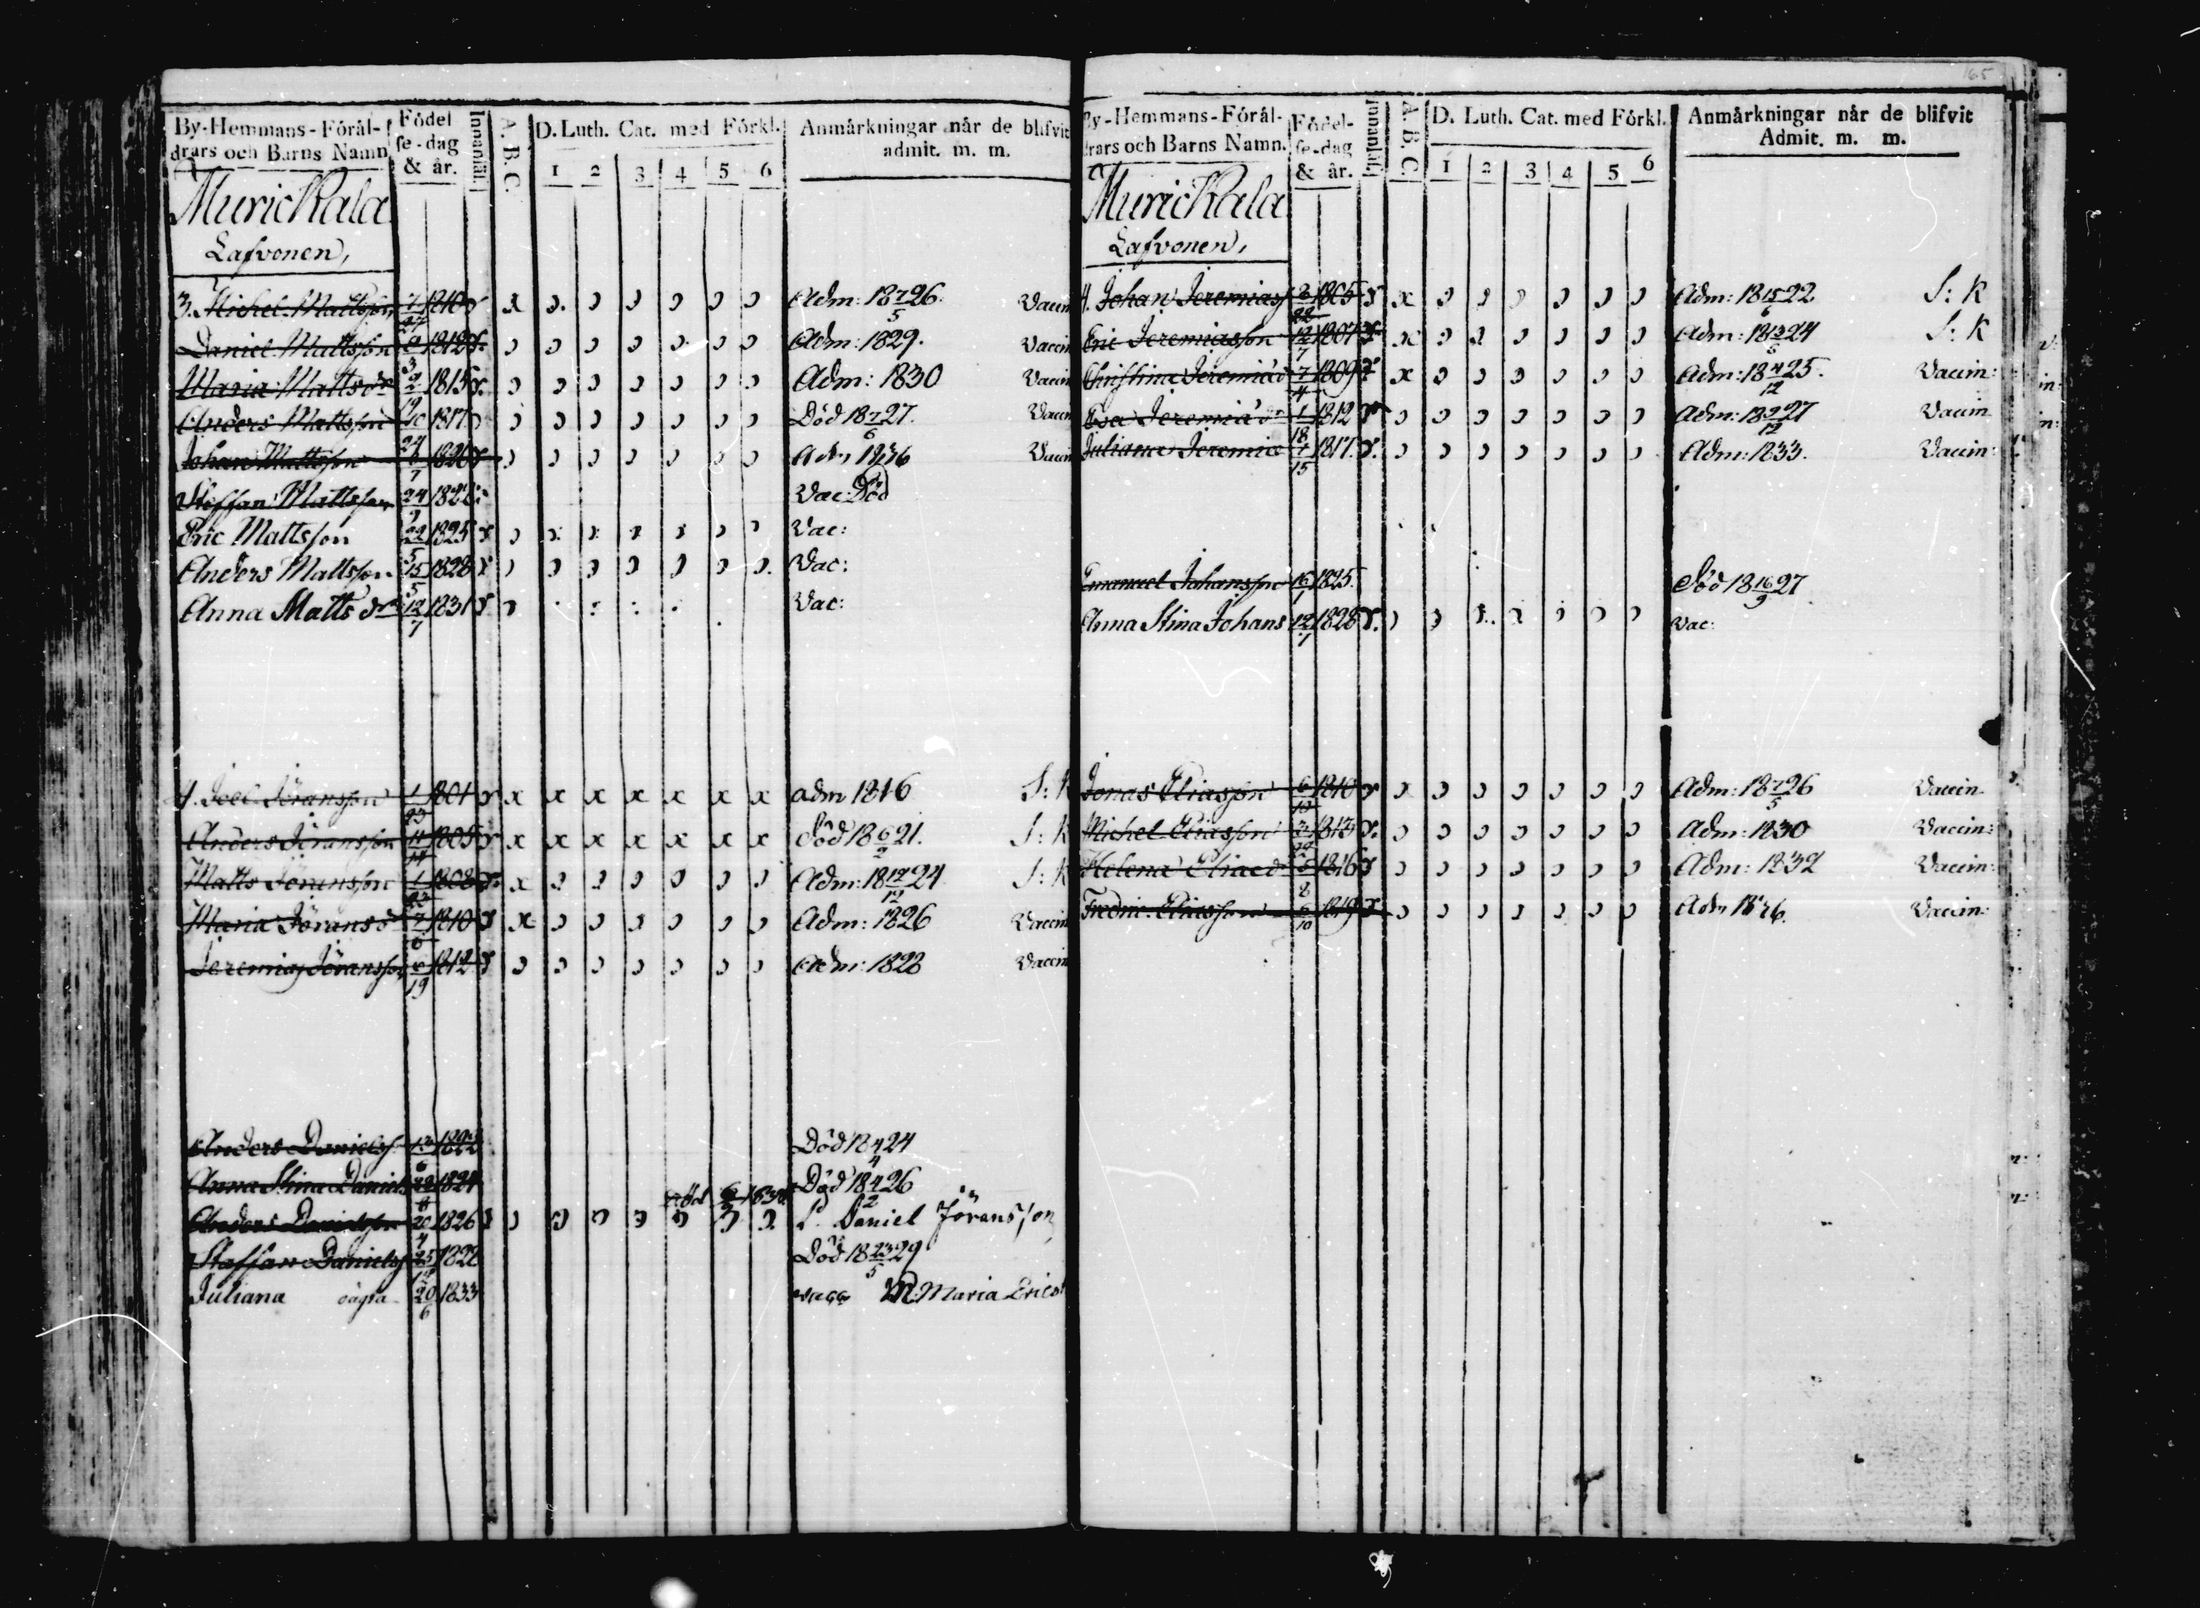 165
By-Hemmans-Förål-
drars och Barns Namn
Födel
se-dag
& år.
Innanläs.
A. B. C.
D. Luth. Cat. med Förkl.
1 2 3 4 5 6
Anmårkningar når de blifvit
admit. m. m.
Murickala
Lafvonen,
3. Michel Mattsson 7/27 1810 x x Adm: 18 7/5 26. Vaccin
Daniel Mattsson 1812 Adm: 1829. Vaccin
Maria Mattsdr 1815 Adm: 1830 Vaccin
Anders Mattsson 1817 Död 18 7/6 27. Vaccin
Johan Mattsson 1820 Adm 1836 Vaccin
Staffan Mattsson 24 1822 Vac: Död
Eric Mattsson 1825 x Vac:
Anders Mattsson 15 1828 x Vac:
Anna Mattsdr 12/7 1831 Vac:
4. Joel Jöransson 1/23 1801 x x x x x x x x adm 1816 S: K
Anders Jöransson 11/14 1805 x x x x x x x x Död 18 6/2 21. S: K
Matts Jöransson 1/23 1808 x Adm: 18 12/12 24 S: K
Maria Jöransd 7/6 1810 x x Adm: 1826 Vaccin
Jeremias Jöransson 6/19 1812 x Adm: 1828 Vaccin
Anders Daniels 1822 Död 18 4/4 24
Anna Stina Daniels 1824 Död 18 4/2 26
Anders Danielsson 20/4 1826 S. Daniel Jöransson
Staffan Daniels 25 1828 Död 18 23/5 29
Juliana oägta 20/6 1833 vacc M: Maria Ericsd
By-Hemmans-Förål-
drars och Barns Namn.
Födel-
se-dag
& år.
Innanläs.
A. B. C.
D. Luth. Cat. med Förkl.
1 2 3 4 5 6
Anmårkningar når de blifvit
Admit. m. m.
Murickala
Lafvonen,
4. Johan Jeremiass 3/22 1805 x x Adm: 18 15/6 22 S: K
Eric Jeremiasson 12/7 1807 x x Adm: 18 13/5 24 S: K
Christina Jeremiad 7/4 1809 x x Adm: 18 4/12 25. Vaccin:
Eva Jeremiad 1/18 1812 Adm: 18 9/12 27 Vaccin
Juliana Jeremiæ 7/15 1817. Adm: 1833. Vaccin:
Emanuel Johansson 16/1 1825. Död 18 16/9 27
Anna Stina Johans 12/7 1828 vac:
Jonas Eliasson 6/12 1810 x x Adm: 18 7/5 26 Vaccin
Michel Eliasson 1813 Adm: 1830 Vaccin:
Helena Eliaed 5/8 1816 Adm: 1832 Vaccin:
Fredric Eliasson 6/10 1819 x Adm 1836. Vaccin: